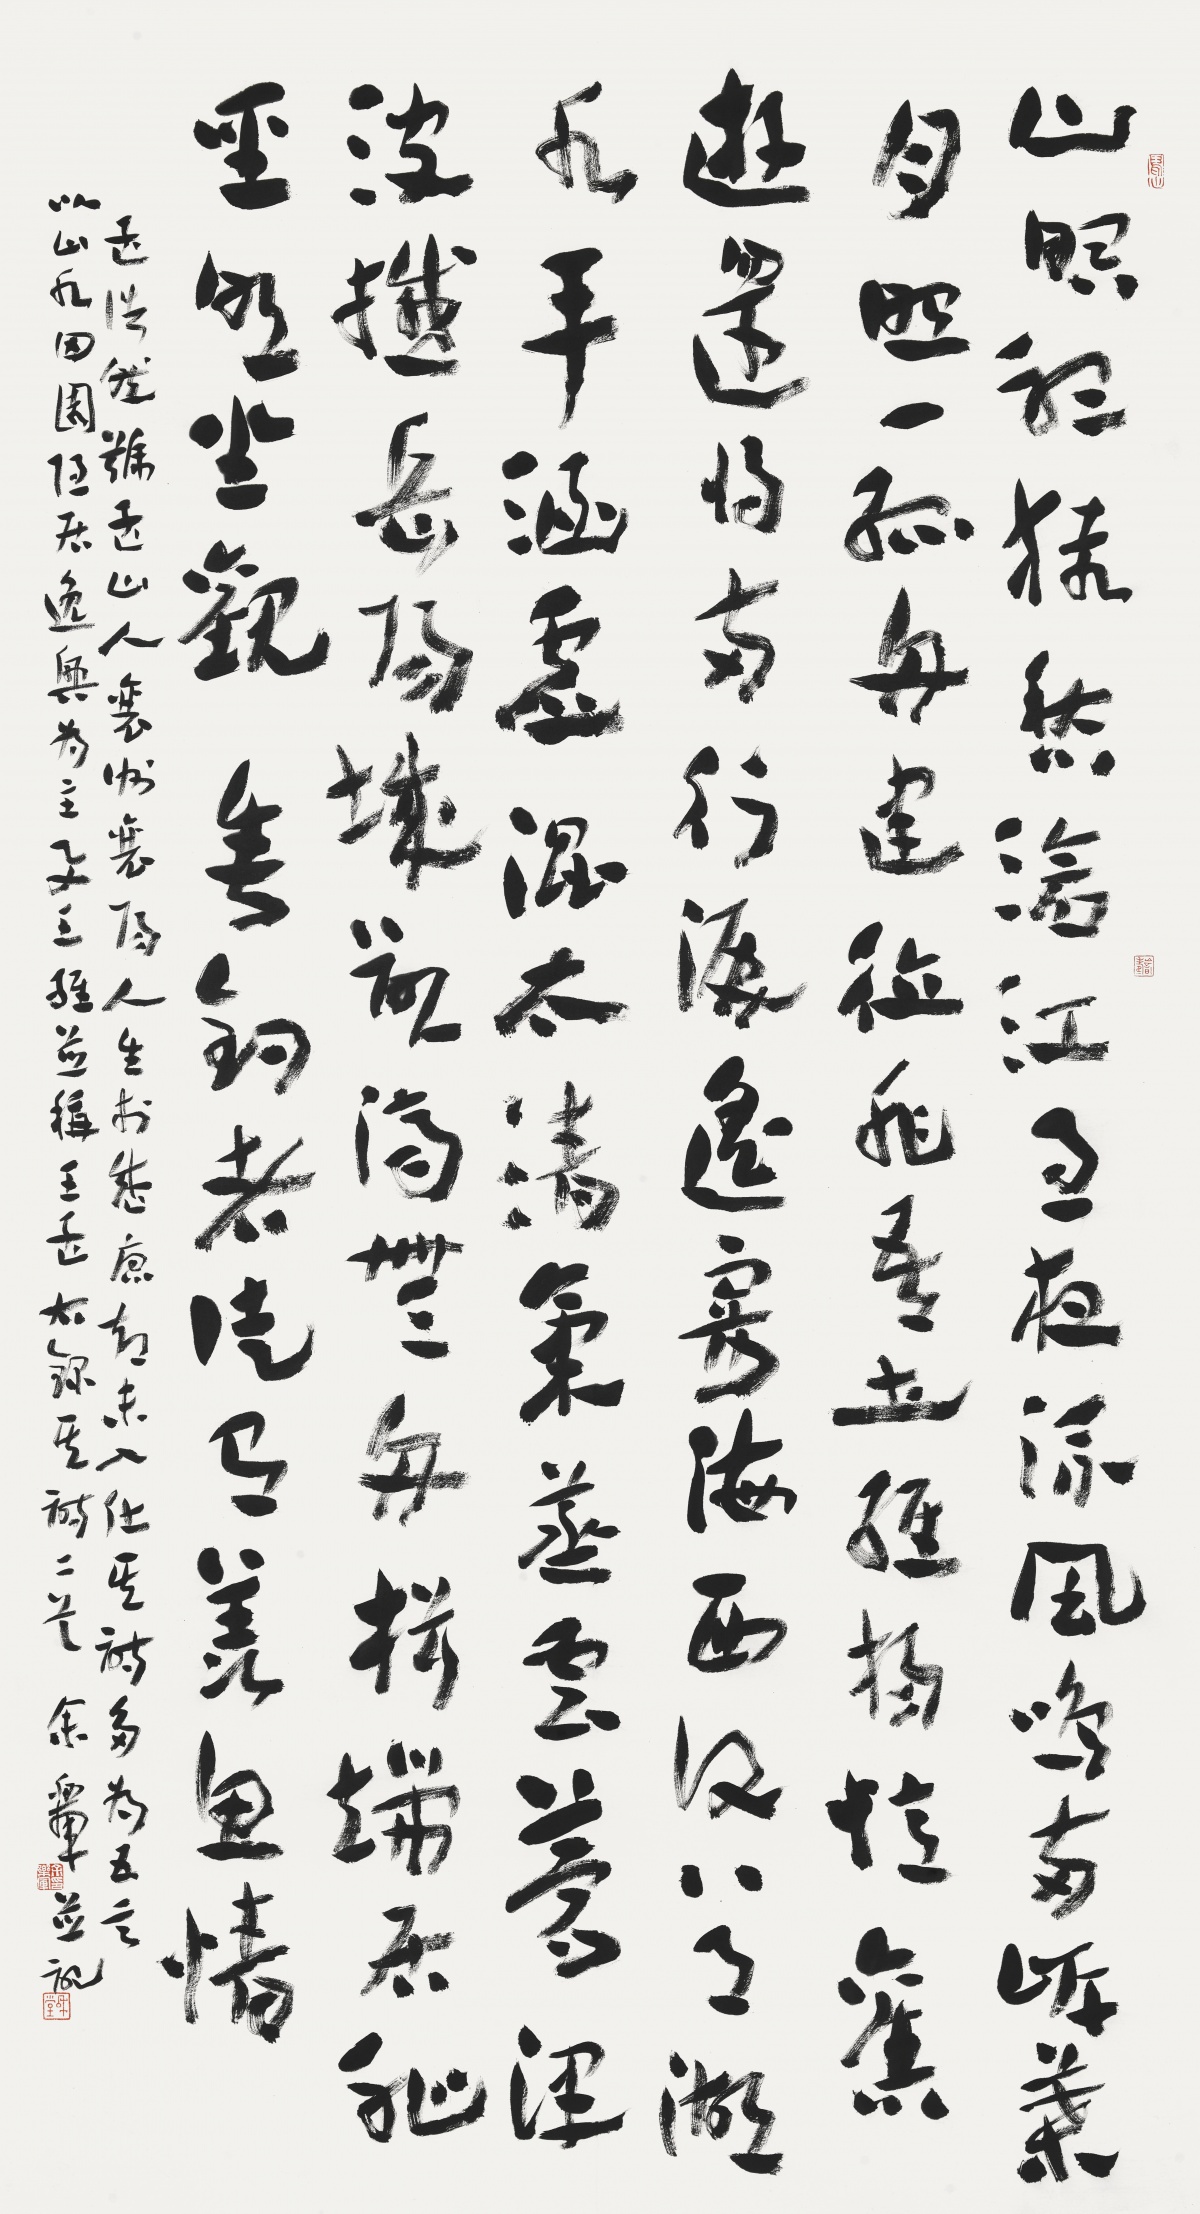 山暝聽猿愁滄江急夜流風鳴兩岸葉
月照一孤舟建德非吾土維揚憶舊
遊還將兩行淚遙寄海西頭八月湖
水平涵虛混太清氣蒸雲夢澤
波撼岳陽城欲濟無舟楫端居恥
聖明坐觀垂釣者徒有羨魚情
孟浩然號孟山人襄州襄陽人生於盛唐却未入仕其詩多為五言
以山水田園隱居逸興為主與王維並稱王孟右錄其詩二首余並記